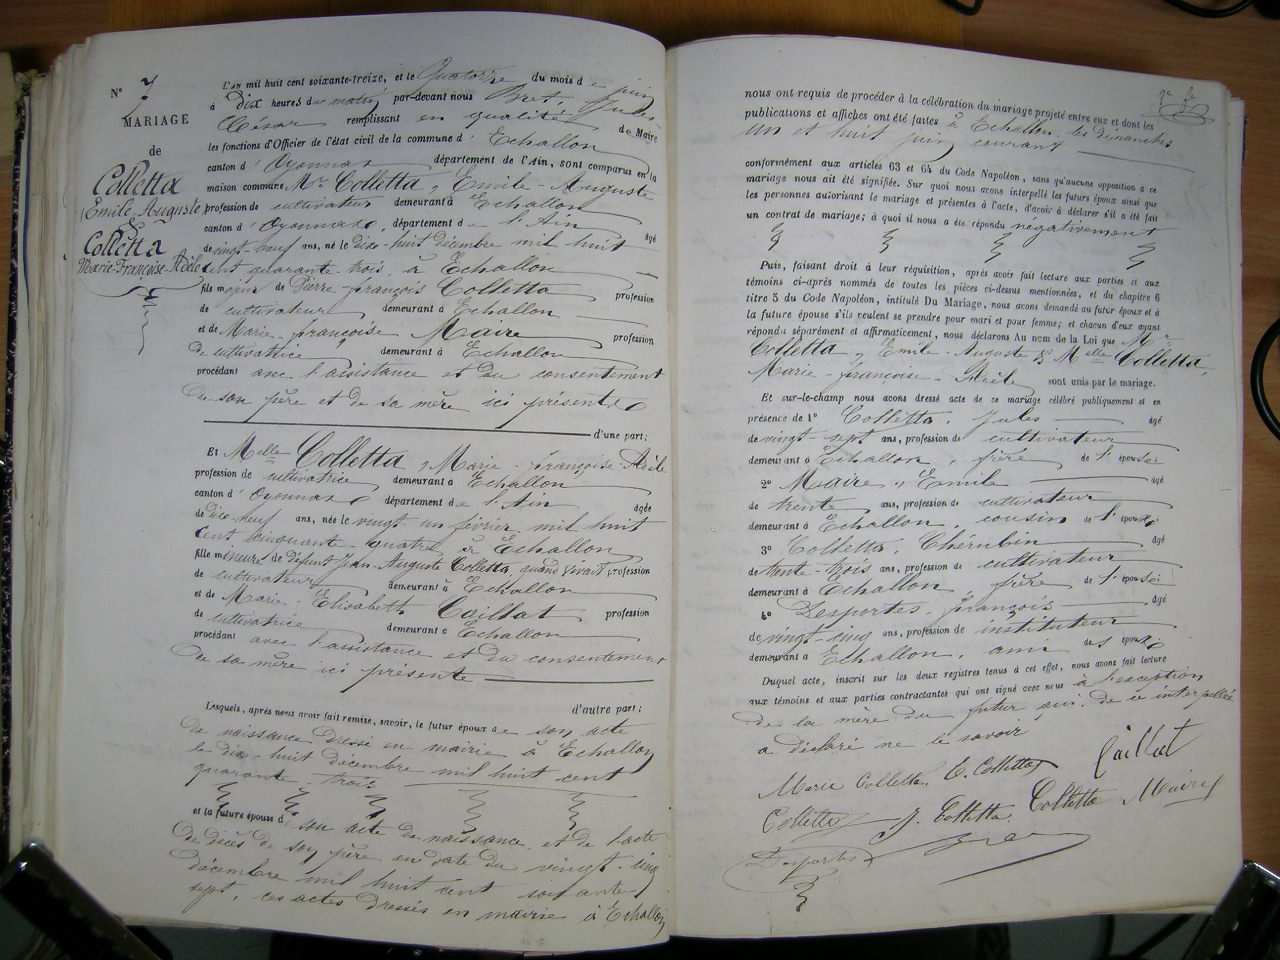 N° 7
MARIAGE
de
Colletta
Emile-Auguste
&
Colletta
Marie-Françoise-Adèle
L'an mil huit cent soixante-treize, et le Quatorze du mois de juin
à Dix heures du matin par-devant nous Bret, Jules-
César remplissant en qualité de Maire
les fonctions d'Officier de l'état civil de la commune d'Echallon
canton d'Oyonnax département de l'Ain, sont comparus en la
maison commune Mr Colletta, Emile-Auguste
profession de cultivateur demeurant à Echallon
canton d'Oyonnax, département de l'Ain âgé
de vingt neuf ans, né le dix-huit décembre mil huit
cent quarante-trois, à Echallon
fils majeur de Pierre françois Colletta profession
de cultivateur demeurant à Echallon
et de Marie-françoise Maire profession
de cultivatrice demeurant à Echallon
procédant avec l'assistance et du consentement
de son père et de sa mère ici présents
d'une part;
Et Melle Colletta, Marie-françoise-Adèle
profession de cultivatrice demeurant à Echallon
canton d'Oyonnax département de l'Ain âgée
de dix-neuf ans, née le vingt un février mil huit
cent cinquante-quatre à Echallon
fille mineure de Défunt Jean-Auguste Colletta, quand vivait profession
de cultivateur demeurant à Echallon
et de Marie-Elisabeth Caillat profession
de cultivatrice demeurant à Echallon
procédant avec l'assistance et du consentement
de sa mère ici présente
d'autre part;
Lesquels, après nous avoir fait remise, savoir, le futur époux de son acte
de naissance Dressé en mairie à Echallon
le dix-huit décembre mil huit cent
quarante-trois
et la future épouse d son acte de naissance et de l'acte
de décès de son père en date du vingt-cinq
décembre mil huit cent soixante
sept, ces actes dressés en mairie à Echallon
nous ont requis de procéder à la célébration du mariage projeté entre eux et dont les
publications et affiches ont été faites à Echallon les dimanches
un et huit juin courant
conformément aux articles 63 et 64 du Code Napoléon, sans qu'aucune opposition à ce
mariage nous ait été signifiée. Sur quoi nous avons interpellé les futurs époux ainsi que
les personnes autorisant le mariage et présentes à l'acte, d'avoir à déclarer s'il a été fait
un contrat de mariage; à quoi il nous a été répondu négativement
Puis, faisant droit à leur réquisition, après avoir fait lecture aux parties et aux
témoins ci-après nommés de toutes les pièces ci-dessus mentionnées, et du chapitre 6
titre 5 du Code Napoléon, intitulé Du Mariage, nous avons demandé au futur époux et à
la future épouse s'ils veulent se prendre pour mari et pour femme; et chacun d'eux ayant
répondu séparément et affirmativement, nous déclarons Au nom de la Loi que Mr
Colletta, Emile-Auguste & Melle Colletta,
Marie-françoise-Adèle sont unis par le mariage.
Et sur-le-champ nous avons dressé acte de ce mariage célébré publiquement et en
présence de 1° Colletta, Jules âgé
de vingt-sept ans, profession de cultivateur
demeurant à Echallon, frère de l'époux
2° Maire, Emile âgé
de trente ans, profession de cultivateur
demeurant à Echallon, cousin de l'époux
3° Colletta, Chérubin âgé
de trente-trois ans, profession de cultivateur
demeurant à Echallon frère de l'épouse
4° Desportes, françois âgé
de vingt-cinq ans, profession de instituteur
demeurant à Echallon, ami des époux
Duquel acte, inscrit sur les deux registres tenus à cet effet, nous avons fait lecture
aux témoins et aux parties contractantes qui ont signé avec nous à l'exception
de la mère du futur qui, de ce interpellée
a déclaré ne le savoir
Marie Colletta E. Colletta Caillat
Colletta J. Colletta Colletta Maire
Desportes